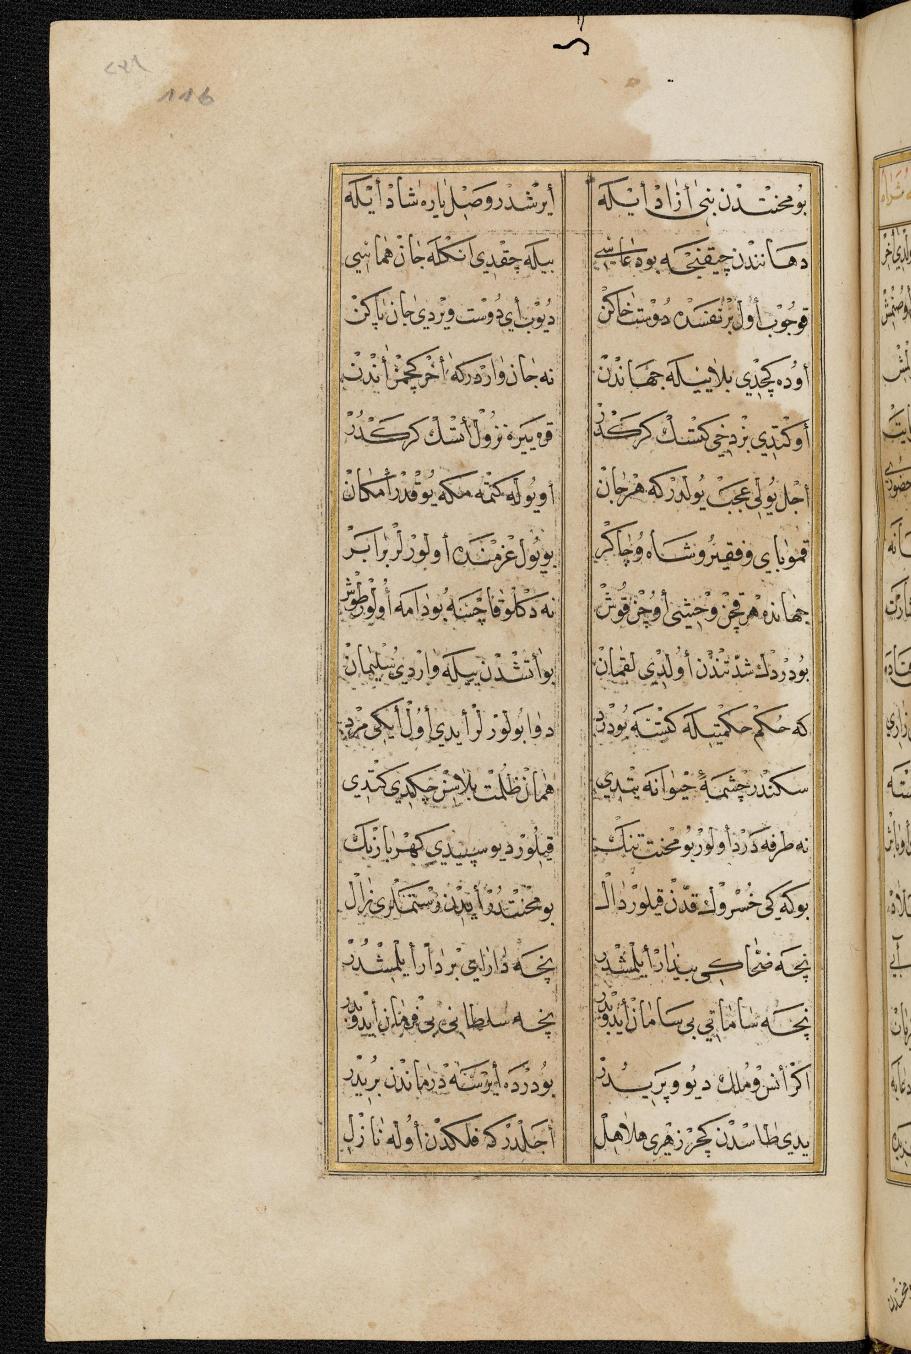 116
بو محنتدن بنی أزاد أیله أیرشدر وصل یاره شاد أیله
دهانندن چیقنجه بو دعاسی بیله چقدی انکله جان هماسی
قوجوب أول بر نفسده دوست خاکن دیوب أی دوست ویردی جان پاکن
أوده کچدی بلاییله جهاندن نه جان واردر که أخر کچمز أندن
أوکتدی بز دخی کتسک کرکدر قره ییره نزول أتسک کرکدر
أجل یولی عجب یولدر که هر جان أو یوله کتمه مکه یوقدر امکان
قمو بای و فقیر و شاه و چاکر بو یول عزمنده أولورلر برابر
جهانده هر قچن وحشی أوچن قوش نه دکلو قاچنه بو دامه أولور طوش
بو دردک شدتندن أولدی لقمان بو أتشدن ییله واردی سلیمان
که حکم حکمتیله کشته بو درد دوا بولورلر أیدی أول أیکی مرد
سکندر چشمۀ حیوانه یتدی همان ظلمت بلاسن چکدی کتدی
نه طرفه درد أولور بو محنت تنک قیلور دیو سپیدی کهربا رنک
بو که کی خسروک قدن قیلور دال بو محنتدر أیدن رستملری زال
نچه ضحاکی بیذار أیلمشدر نچه دارایی بر دار أیلمشدر
نچه سامانی بی سامان أیدوبدر نچه سلطانی بی فرمان أیدوبدر
اکر أنس و ملک دیو و پریدر بو درده أیرسنه درماندن بریدر
یدی طاسدن کچر زهری هلاهل أجلدر که فلکدن أوله نازل